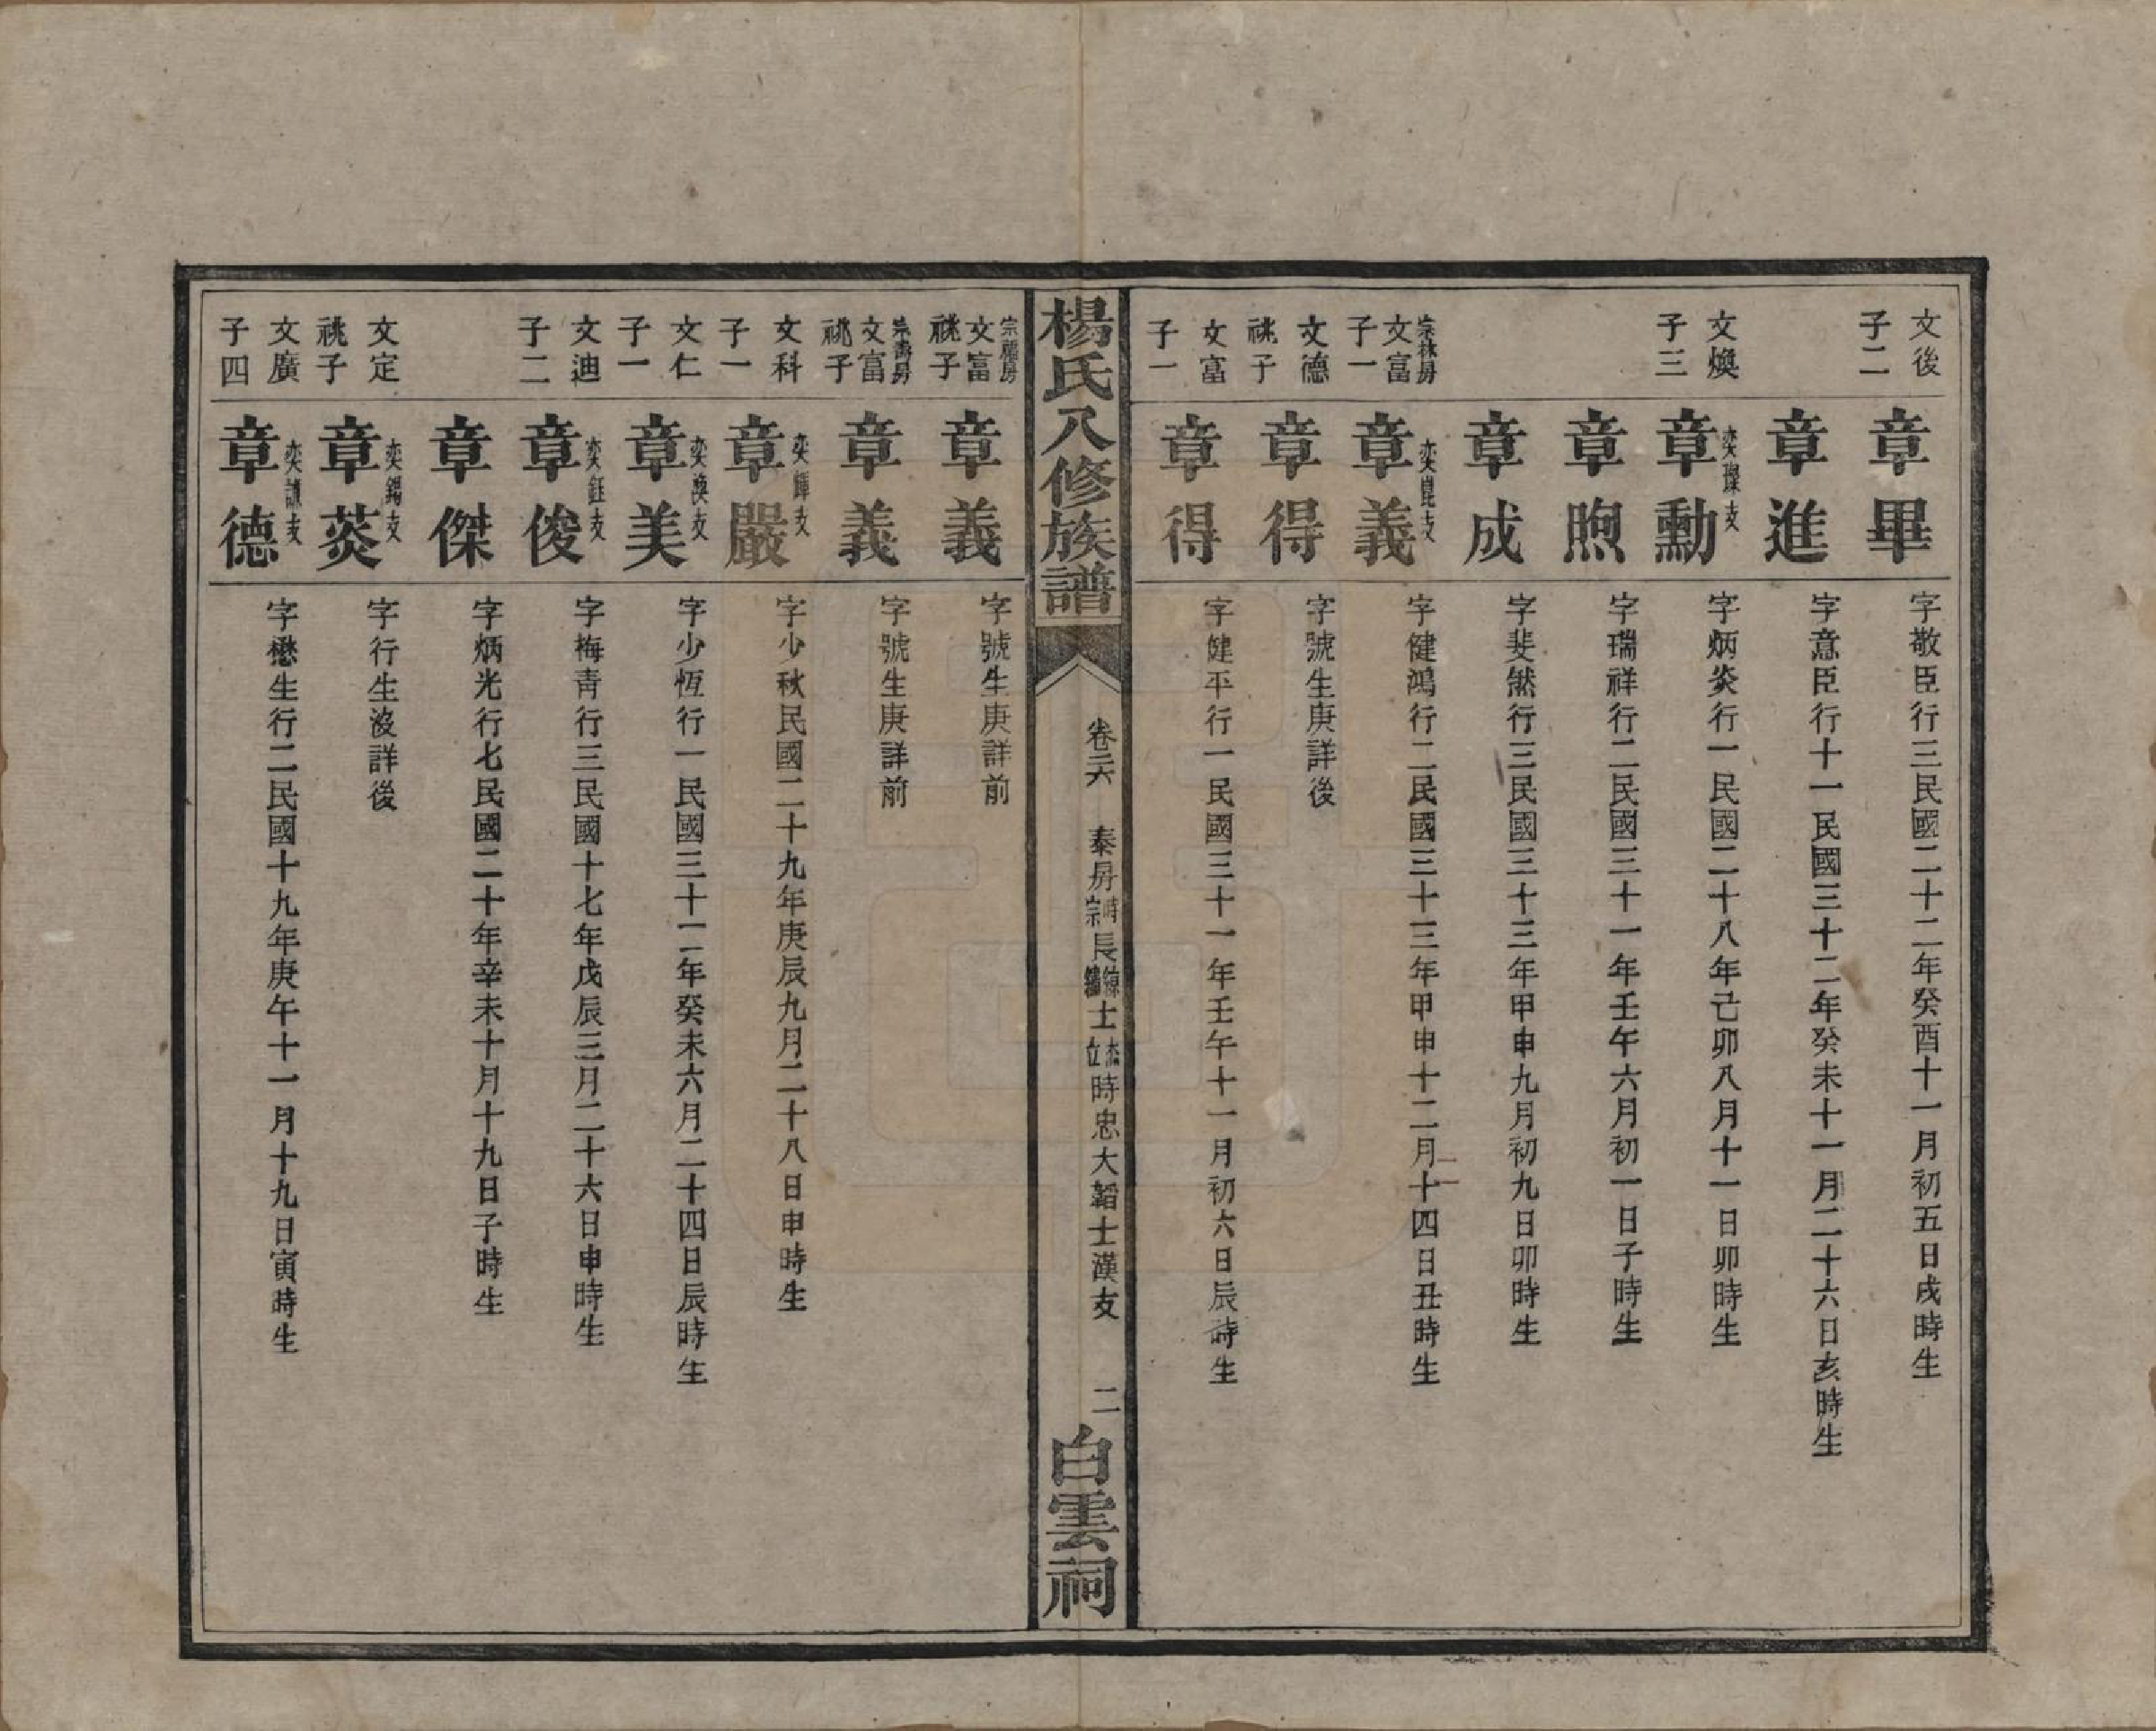 文後
子二
章畢
字敬臣行三民國二十二年癸酉十一月初五日戌時生
章進
字意臣行十一民國三十二年癸未十一月二十六日亥時生
文煥
子三
奕璨支
章勳
字炳炎行一民國二十八年己卯八月十一日卯時生
章煦
字瑞祥行二民國三十一年壬午六月初一日子時生
章成
字斐然行三民國三十三年甲申九月初九日卯時生
宗林房
文富
子一
奕崑支
章義
字健鴻行二民國三十三年甲申十二月十四日丑時生
文德
祧子
章得
字號生庚詳後
文富
子一
章得
字健平行一民國三十一年壬午十一月初六日辰時生
楊氏八修族譜
卷二六
秦房時宗長士杰立時忠大韜士漢支
二
白雲祠
宗禮房
文富
祧子
章義
字號生庚詳前
文富
祧子
章義
字號生庚詳前
文科
子一
奕輝支
章嚴
字少秋民國二十九年庚辰九月二十八日申時生
文仁
子一
奕換支
章美
字少恆行一民國三十二年癸未六月二十四日辰時生
文迪
子二
奕鈺支
章俊
字梅青行三民國十七年戊辰三月二十六日申時生
章傑
字炳光行七民國二十年辛未十月十九日子時生
文定
祧子
奕錫支
章菼
字行生沒詳後
文廣
子四
奕謙支
章德
字懋生行二民國十九年庚午十一月十九日寅時生